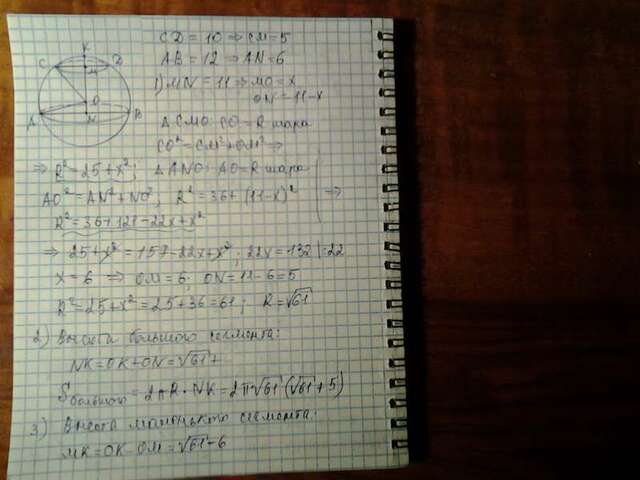 K
C M D
O
A N B
CD = 10 ⇒ CM = 5
AB = 12 ⇒ AN = 6
1) MN = 11 ⇒ MO = x
ON = 11 - x
△ CMO: CO = R шара
CO² = CM² + OM² ⇒
⇒ R² = 25 + x²; △ ANO: AO = R шара
AO² = AN² + NO²; R² = 36 + (11-x)² ⇒
R² = 36 + 121 - 22x + x²
⇒ 25 + x² = 157 - 22x + x²; 22x = 132 |:22
x = 6 ⇒ OM = 6; ON = 11 - 6 = 5
R² = 25 + x² = 25 + 36 = 61; R = √61
2) Высота большого сегмента:
NK = OK + ON = √61 +
S большого = 2πR · NK = 2π√61 (√61 + 5)
3) Высота маленького сегмента:
MK = OK - OM = √61 - 6